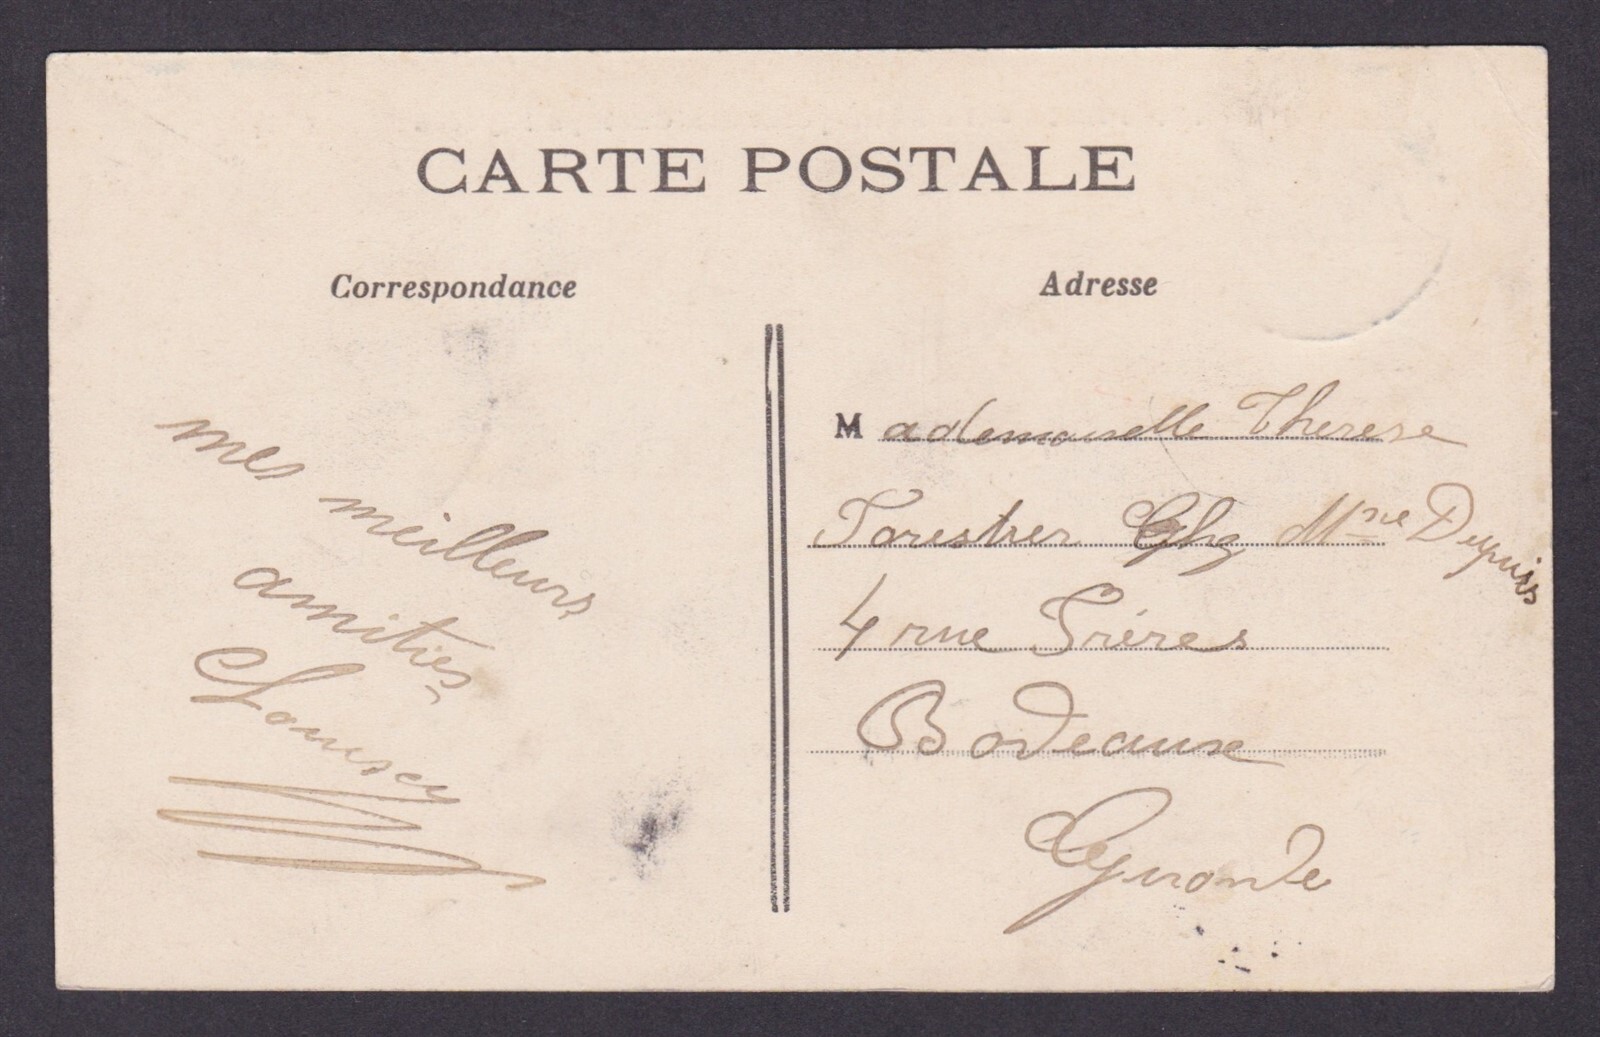 CARTE POSTALE
Correspondance
mes meilleurs
amitiés
Adresse
Mademoiselle Therese
Forestier Chez Mme Dupuis
4 rue Frères
Bodeaux
Gironde